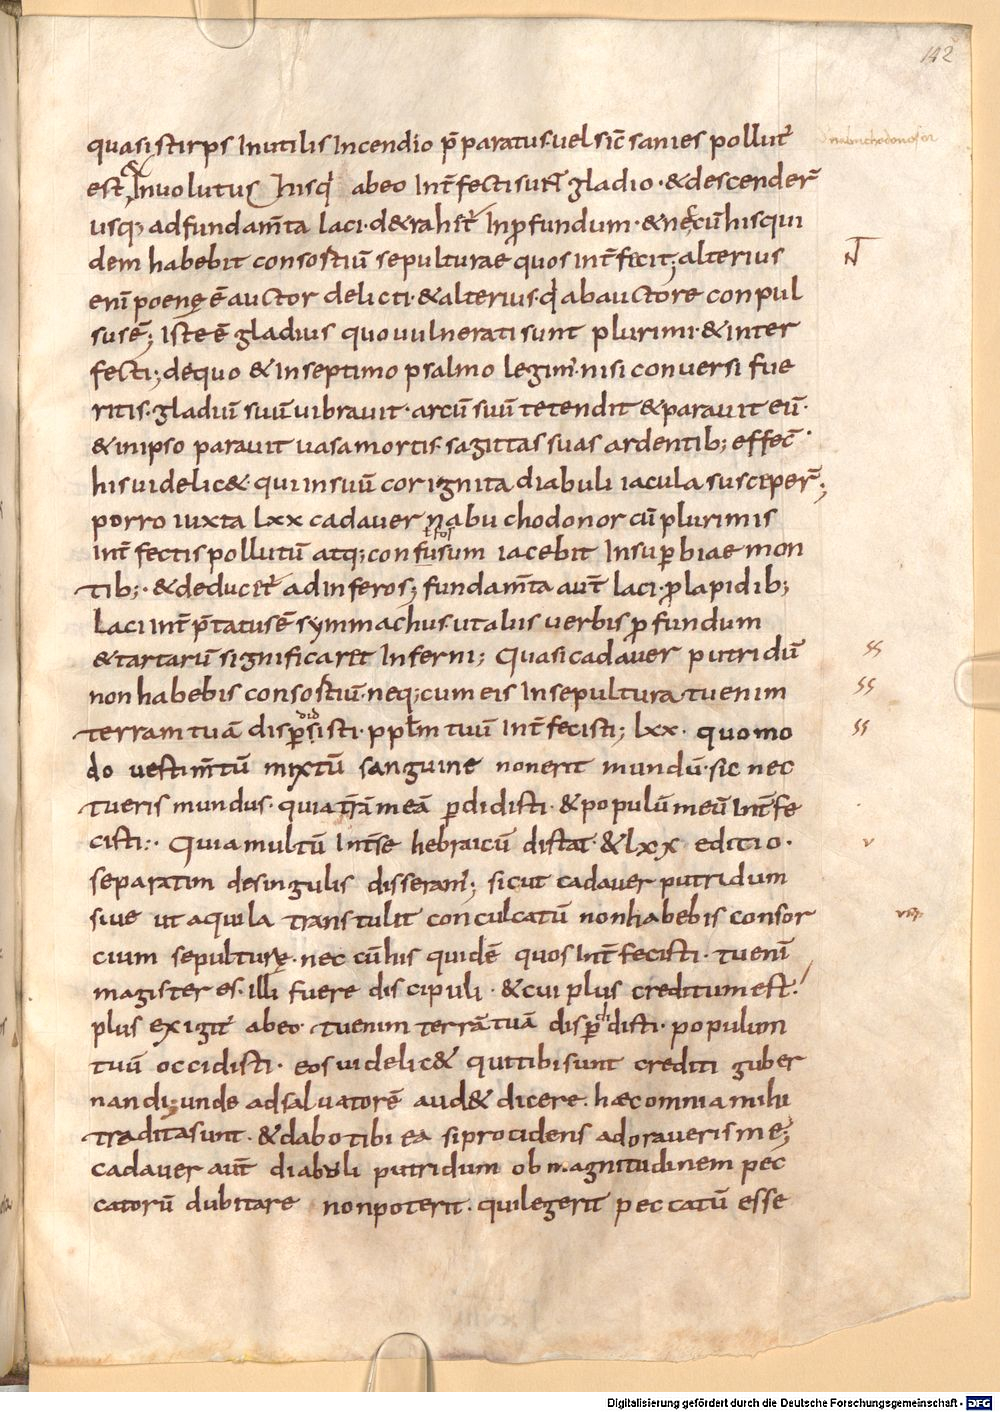 142
nabuchodonosor
quasi stirps Inutilis Incendio p̄paratus· vel sic̄ sanies pollut̄
est, & Involutus Inisq̄ abeo Int̄fecti sunt̄ gladio· & descender̄
usq; adfundam̄ta laci· d&rahet̄ Inp̄fundum· & nec cū his qui
dem habebit consortiū sepulturae quos int̄fecit; alterius
enī poenę ē auctor delicti· & alterius· q̄ abauctore conpul
sus ē; Iste ē gladius quo vulnerati sunt plurimi· & inter
fecti; dequo & Inseptimo psalmo legim̄· nisi conversi fue
ritis· gladiū suū vibravit· arcū suū tetendit & paravit eū·
& inipso paravit vasa mortis· sagittas suas ardentib; effec̄·
his videlic& · qui insuū cor ignita diabuli iacula susceper̄;
porro iuxta lxx cadaver nabuchodonor cū plurimis
int̄fectis pollutū atq; confusum iacebit Insup̄biae mon
tib;· & deducet̄ adinferos; fundam̄ta aut̄ laci· p̄ lapidib;
Laci int̄p̄tatus ē symmachus· ut alius verbis p̄fundum
& tartarū significaret Inferni; Quasi cadaver putridū
non habebis consortiū· neq; cum eis Insepultura· tu enim
terram tuā disp̄sisti· ppl̄m tuū Int̄fecisti; lxx· quomo
do vestim̄tū mixtū sanguine non erit mundū· sic nec
tu eris mundus· quia t̄rā meā p̄didisti· & populū meū Int̄fe
cisti:· Quia multū Int̄se hebraicū distat· & lxx editio·
separatim desingulis disseram̄; sicut cadaver putridum
sive ut aquila transtulit conculcatū non habebis consor
cium sepulturę· nec cū his quidē quos Int̄fecisti· tu enī
magister es· illi fuere discipuli· & cui plus creditum est·
plus exigit̄ abeo· tu enim terrā tuā disp̄didisti· populum
tuū occidisti· eos videlic& qui tibi sunt crediti guber
nandi; unde ad salvatorē aud& dicere· haec omnia mihi
tradita sunt· & dabo tibi ea si procidens adoraveris me;
cadaver aut̄ diabuli putridum ob magnitudinem pec
catorū dubitare non poterit· qui legerit peccatū esse
Digitalisierung gefördert durch die Deutsche Forschungsgemeinschaft - DFG